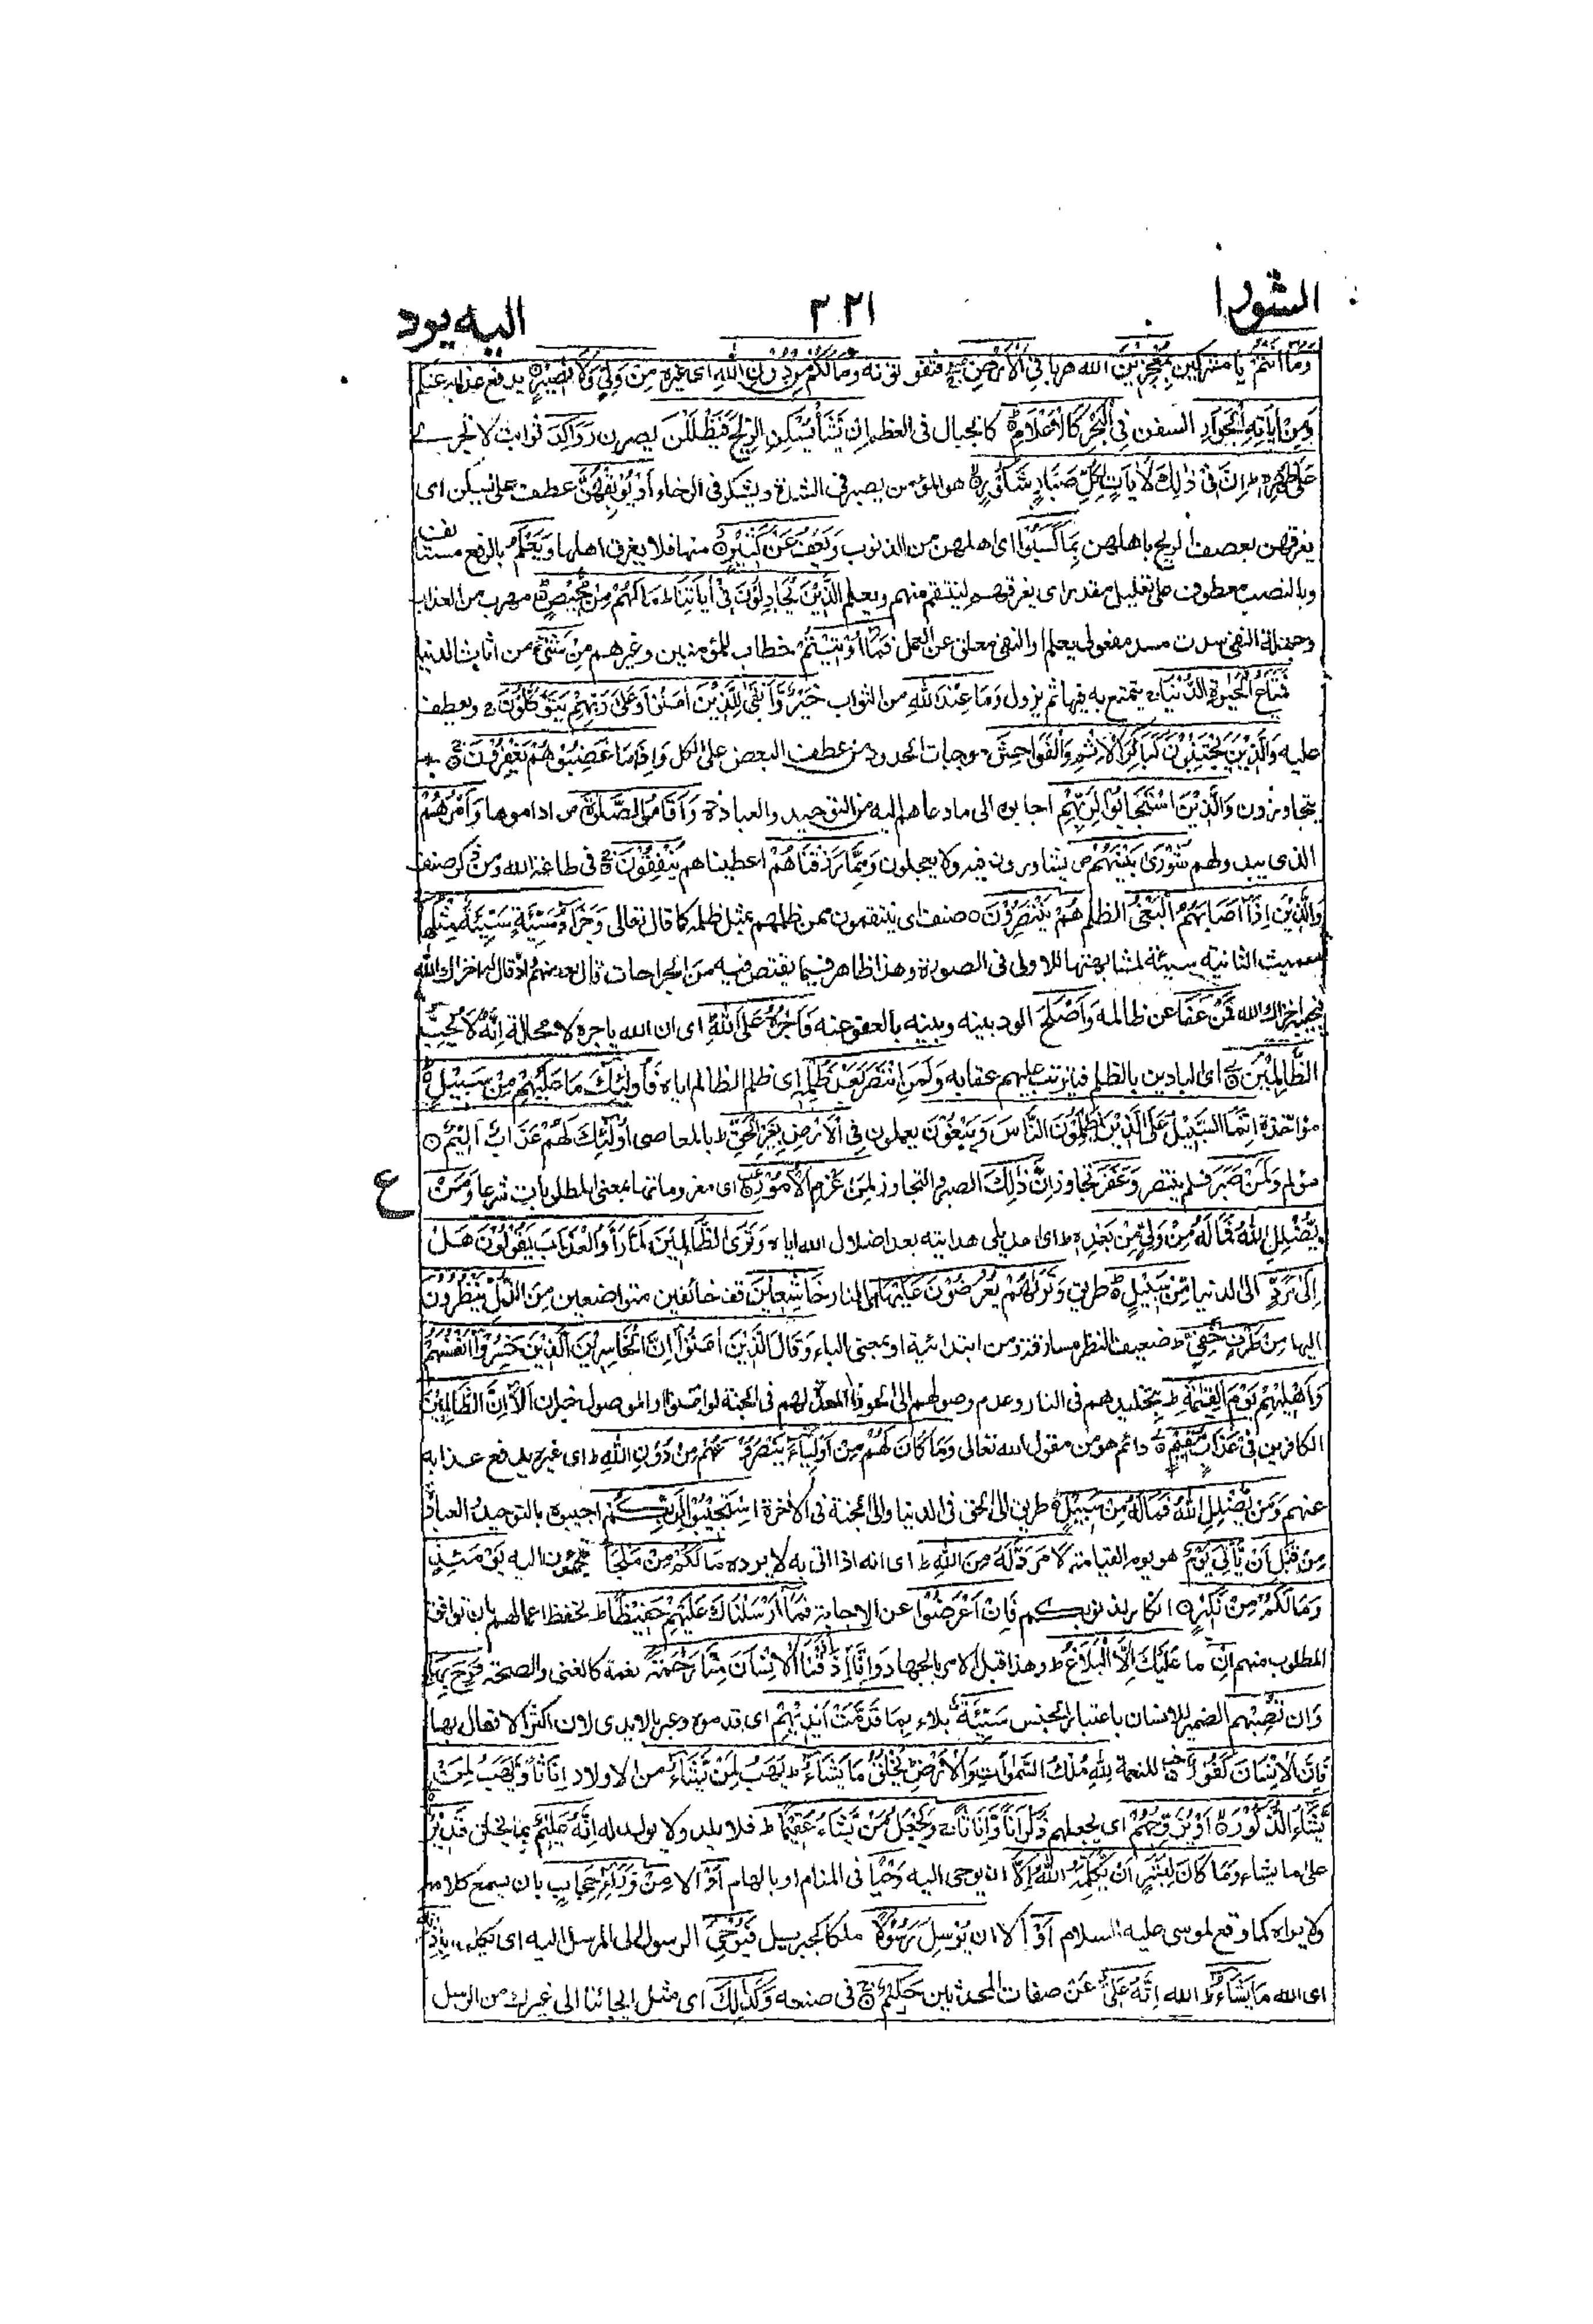 الشورا ٣٢١ اليه يرد
وَمَا اَنْتُمْ يا مشركين بِمُعْجِزِيْنَ الله هربا فِي الْاَرْضِ فتفوتونه وَمَا لَكُمْ مِنْ دُوْنِ اللهِ اى غيره مِنْ وَلِيٍّ وَّلَا نَصِيْرٍ يدفع عذابه عنكم
وَمِنْ اٰيَاتِهِ الْجَوَارِ السفن فِي الْبَحْرِ كَالْاَعْلَامِ كالجبال فى العظم اِنْ يَّشَأْ يُسْكِنِ الرِّيْحَ فَيَظْلَلْنَ يصرن رَوَاكِدَ ثوابت لا تجرى
عَلٰى ظَهْرِهٖ اِنَّ فِيْ ذٰلِكَ لَاٰيَاتٍ لِّكُلِّ صَبَّارٍ شَكُوْرٍ هو المؤمن يصبر فى الشدة ويشكر فى الرخاء اَوْ يُوْبِقْهُنَّ عطف على يسكن اى
يغرقهن بعصف الريح باهلهن بِمَا كَسَبُوْا اى اهلهن من الذنوب وَيَعْفُ عَنْ كَثِيْرٍ منها فلا يغرق اهلها وَيَعْلَمَ بالرفع مستانف
وبالنصب معطوف على تعليل مقدر اى يغرقهم لينتقم منهم ويعلم الَّذِيْنَ يُجَادِلُوْنَ فِيْ اٰيَاتِنَا مَا لَهُمْ مِّنْ مَّحِيْصٍ مهرب من العذاب
وجملة النفى سدت مسد مفعولى يعلم او النفى معلق عن العمل فَمَا اُوْتِيْتُمْ خطاب للمؤمنين وغيرهم مِّنْ شَيْءٍ من اثاث الدنيا
فَمَتَاعُ الْحَيٰوةِ الدُّنْيَا يتمتع به فيها ثم يزول وَمَا عِنْدَ اللهِ من الثواب خَيْرٌ وَّاَبْقٰى لِلَّذِيْنَ اٰمَنُوْا وَعَلٰى رَبِّهِمْ يَتَوَكَّلُوْنَ ويعطف
عليه وَالَّذِيْنَ يَجْتَنِبُوْنَ كَبَائِرَ الْاِثْمِ وَالْفَوَاحِشَ موجبات الحدود من عطف البعض على الكل وَاِذَا مَا غَضِبُوْا هُمْ يَغْفِرُوْنَ
يتجاوزون وَالَّذِيْنَ اسْتَجَابُوْا لِرَبِّهِمْ اجابوه الى ما دعاهم اليه من التوحيد والعبادة وَاَقَامُوا الصَّلٰوةَ اداموها وَاَمْرُهُمْ
الذى يبدو لهم شُوْرٰى بَيْنَهُمْ يتشاورون فيه ولا يعجلون وَمِمَّا رَزَقْنَاهُمْ اعطيناهم يُنْفِقُوْنَ فى طاعة الله ومن ذكر صنف
وَالَّذِيْنَ اِذَا اَصَابَهُمُ الْبَغْيُ الظلم هُمْ يَنْتَصِرُوْنَ صنف اى ينتقمون ممن ظلمهم بمثل ظلمه كما قال تعالى وَجَزَاءُ سَيِّئَةٍ سَيِّئَةٌ مِّثْلُهَا
سميت الثانية سيئة لمشابهتها للاولى فى الصورة وهذا ظاهر فيما يقتص فيه من الجراحات قال بعضهم واذا قال له اخزاك الله
فيجيبه اخزاك الله فَمَنْ عَفَا عن ظالمه وَاَصْلَحَ الود بينه وبينه بالعفو عنه فَاَجْرُهُ عَلَى اللهِ اى ان الله ياجره لا محالة اِنَّهُ لَا يُحِبُّ
الظَّالِمِيْنَ اى البادين بالظلم فيترتب عليهم عقابه وَلَمَنِ انْتَصَرَ بَعْدَ ظُلْمِهٖ اى ظلم الظالم اياه فَاُولٰئِكَ مَا عَلَيْهِمْ مِّنْ سَبِيْلٍ
مؤاخذة اِنَّمَا السَّبِيْلُ عَلَى الَّذِيْنَ يَظْلِمُوْنَ النَّاسَ وَيَبْغُوْنَ يعملون فِي الْاَرْضِ بِغَيْرِ الْحَقِّ بالمعاصى اُولٰئِكَ لَهُمْ عَذَابٌ اَلِيْمٌ
مؤلم وَلَمَنْ صَبَرَ فلم ينتصر وَغَفَرَ تجاوز اِنَّ ذٰلِكَ الصبر والتجاوز لَمِنْ عَزْمِ الْاُمُوْرِ اى معزوماتها بمعنى المطلوبات شرعا وَمَنْ ع
يُّضْلِلِ اللهُ فَمَا لَهُ مِنْ وَّلِيٍّ مِّنْ بَعْدِهٖ اى احد يلى هدايته بعد اضلال الله اياه وَتَرَى الظَّالِمِيْنَ لَمَّا رَاَوُا الْعَذَابَ يَقُوْلُوْنَ هَلْ
اِلٰى مَرَدٍّ الى الدنيا مِّنْ سَبِيْلٍ طريق وَتَرٰىهُمْ يُعْرَضُوْنَ عَلَيْهَا اى النار خَاشِعِيْنَ خائفين متواضعين مِنَ الذُّلِّ يَنْظُرُوْنَ
اليها مِنْ طَرْفٍ خَفِيٍّ ضعيف النظر مسارقة ومن ابتدائية او بمعنى الباء وَقَالَ الَّذِيْنَ اٰمَنُوْا اِنَّ الْخَاسِرِيْنَ الَّذِيْنَ خَسِرُوْا اَنْفُسَهُمْ
وَاَهْلِيْهِمْ يَوْمَ الْقِيٰمَةِ بتخليدهم فى النار وعدم وصولهم الى الحور المعدة لهم فى الجنة لو امنوا والموصول خبر ان اَلَا اِنَّ الظَّالِمِيْنَ
الكافرين فِيْ عَذَابٍ مُّقِيْمٍ دائم هو من مقول الله تعالى وَمَا كَانَ لَهُمْ مِّنْ اَوْلِيَاءَ يَنْصُرُوْنَهُمْ مِّنْ دُوْنِ اللهِ اى غيره يدفع عذابه
عنهم وَمَنْ يُّضْلِلِ اللهُ فَمَا لَهُ مِنْ سَبِيْلٍ طريق الى الحق فى الدنيا والى الجنة فى الاخرة اِسْتَجِيْبُوْا لِرَبِّكُمْ اجيبوه بالتوحيد والعبادة
مِّنْ قَبْلِ اَنْ يَّأْتِيَ يَوْمٌ هو يوم القيامة لَّا مَرَدَّ لَهُ مِنَ اللهِ اى انه اذا اتى به لا يرده مَا لَكُمْ مِّنْ مَّلْجَاٍ تلجئون اليه يَّوْمَئِذٍ
وَمَا لَكُمْ مِّنْ نَّكِيْرٍ انكار لذنوبكم فَاِنْ اَعْرَضُوْا عن الاجابة فَمَا اَرْسَلْنَاكَ عَلَيْهِمْ حَفِيْظًا تحفظ اعمالهم بان توافق
المطلوب منهم اِنْ ما عَلَيْكَ اِلَّا الْبَلَاغُ وهذا قبل الامر بالجهاد وَاِنَّا اِذَا اَذَقْنَا الْاِنْسَانَ مِنَّا رَحْمَةً نعمة كالغنى والصحة فَرِحَ بِهَا
وَاِنْ تُصِبْهُمْ الضمير للانسان باعتبار الجنس سَيِّئَةٌ بلاء بِمَا قَدَّمَتْ اَيْدِيْهِمْ اى قدموه وعبر بالايدى لان اكثر الافعال بها
فَاِنَّ الْاِنْسَانَ كَفُوْرٌ للنعمة لِلّٰهِ مُلْكُ السَّمٰوٰتِ وَالْاَرْضِ يَخْلُقُ مَا يَشَاءُ يَهَبُ لِمَنْ يَّشَاءُ من الاولاد اِنَاثًا وَّيَهَبُ لِمَنْ
يَّشَاءُ الذُّكُوْرَ اَوْ يُزَوِّجُهُمْ اى يجعلهم ذُكْرَانًا وَّاِنَاثًا وَيَجْعَلُ مَنْ يَّشَاءُ عَقِيْمًا فلا يلد ولا يولد له اِنَّهُ عَلِيْمٌ بما يخلق قَدِيْرٌ
على ما يشاء وَمَا كَانَ لِبَشَرٍ اَنْ يُّكَلِّمَهُ اللهُ اِلَّا ان يوحى اليه وَحْيًا فى المنام او بالهام اَوْ الا مِنْ وَّرَاءِ حِجَابٍ بان يسمع كلامه
ولا يراه كما وقع لموسى عليه السلام اَوْ الا ان يُرْسِلَ رَسُوْلًا ملكا كجبريل فَيُوْحِيَ الرسول الى المرسل اليه اى يكلمه بِاِذْنِهٖ
اى الله مَا يَشَاءُ الله اِنَّهُ عَلِيٌّ عَنْ صفات المحدثين حَكِيْمٌ فى صنعه وَكَذٰلِكَ اى مثل ايحائنا الى غيرك من الرسل